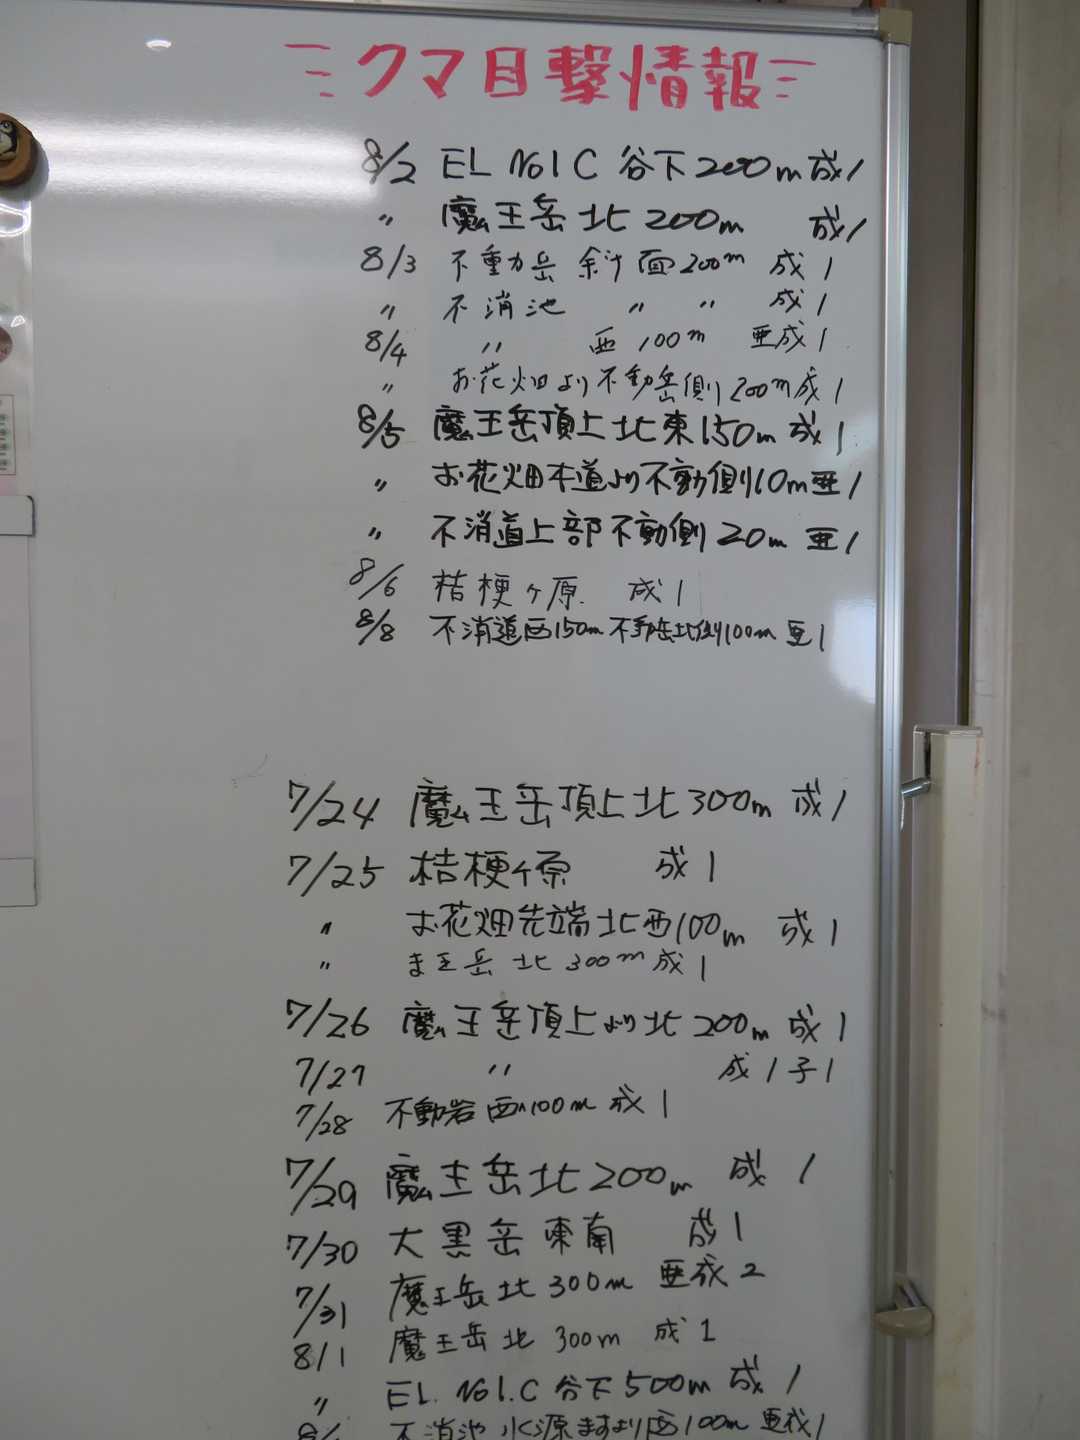 クマ目撃情報
8/2 EL No1C 谷下200m 成1
〃 魔王岳北200m 成1
8/3 不動岳 斜面200m 成1
〃 不消池 〃 〃 成1
8/4 〃 西100m 亜成1
〃 お花畑より不動岳側200m成1
8/5 魔王岳頂上北東150m成1
〃 お花畑本道より不動側10m亜1
〃 不消道上部不動側20m 亜1
8/6 桔梗ヶ原 成1
8/8 不消道西150m不動岳北側100m 亜1
7/24 魔王岳頂上北300m 成1
7/25 桔梗ヶ原 成1
〃 お花畑先端北西100m 成1
〃 ま王岳北300m成1
7/26 魔王岳頂上より北200m 成1
7/27 〃 成1子1
7/28 不動岩西100m 成1
7/29 魔王岳北200m 成1
7/30 大黒岳東南 成1
7/31 魔王岳北300m 亜成2
8/1 魔王岳北300m 成1
〃 EL.No1.C谷下500m 成1
不消池水源ますより西100m 亜成1